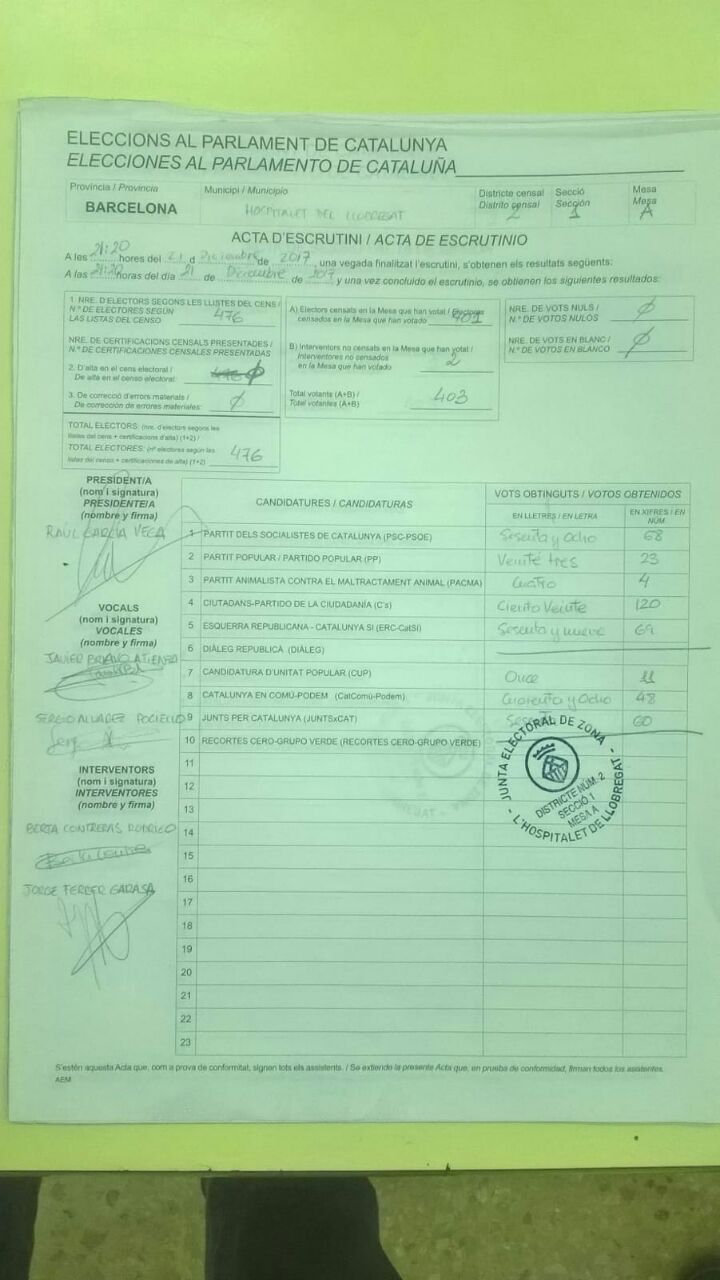 ELECCIONS AL PARLAMENT DE CATALUNYA
ELECCIONES AL PARLAMENTO DE CATALUÑA
Província / Provincia Municipi / Municipio Districte censal Secció Mesa
BARCELONA HOSPITALET DEL LLOBREGAT Distrito censal 2 Sección 1 Mesa A
ACTA D'ESCRUTINI / ACTA DE ESCRUTINIO
A les 21:20 hores del 21 d Diciembre de 2017, una vegada finalitzat l'escrutini, s'obtenen els resultats següents:
A las 21:20 horas del día 21 de Diciembre de 2017 y una vez concluido el escrutinio, se obtienen los siguientes resultados:
1. NRE. D'ELECTORS SEGONS LES LLISTES DEL CENS /
N.º DE ELECTORES SEGÚN
LAS LISTAS DEL CENSO 476
NRE. DE CERTIFICACIONS CENSALS PRESENTADES /
N.º DE CERTIFICACIONES CENSALES PRESENTADAS
2. D'alta en el cens electoral /
De alta en el censo electoral: Ø
3. De correcció d'errors materials /
De corrección de errores materiales: Ø
TOTAL ELECTORS: (nre. d'electors segons les
llistes del cens + certificacions d'alta) (1+2) /
TOTAL ELECTORES: (nº electores según las
listas del censo + certificaciones de alta) (1+2) 476
A) Electors censats en la Mesa que han votat / Electores
censados en la Mesa que han votado 401
B) Interventors no censats en la Mesa que han votat /
Interventores no censados
en la Mesa que han votado 2
Total votants (A+B) /
Total votantes (A+B) 403
NRE. DE VOTS NULS /
N.º DE VOTOS NULOS Ø
NRE. DE VOTS EN BLANC /
N.º DE VOTOS EN BLANCO Ø
PRESIDENT/A
(nom i signatura)
PRESIDENTE/A
(nombre y firma)
RAÚL GARCÍA VEGA
VOCALS
(nom i signatura)
VOCALES
(nombre y firma)
JAVIER ATIENZA
SERGIO
INTERVENTORS
(nom i signatura)
INTERVENTORES
(nombre y firma)
BERTA CONTRERAS
JORGE FERRER
CANDIDATURES / CANDIDATURAS VOTS OBTINGUTS / VOTOS OBTENIDOS
EN LLETRES / EN LETRA EN XIFRES / EN NÚM
1 PARTIT DELS SOCIALISTES DE CATALUNYA (PSC-PSOE) Sesenta y Ocho 68
2 PARTIT POPULAR / PARTIDO POPULAR (PP) Veinte tres 23
3 PARTIT ANIMALISTA CONTRA EL MALTRACTAMENT ANIMAL (PACMA) Cuatro 4
4 CIUTADANS-PARTIDO DE LA CIUDADANÍA (C's) Ciento Veinte 120
5 ESQUERRA REPUBLICANA - CATALUNYA SI (ERC-CatSI) Sesenta y nueve 69
6 DIÀLEG REPUBLICÀ (DIÀLEG)
7 CANDIDATURA D'UNITAT POPULAR (CUP) Once 11
8 CATALUNYA EN COMÚ-PODEM (CatComú-Podem) Cuarenta y Ocho 48
9 JUNTS PER CATALUNYA (JUNTSxCAT) Sesenta 60
10 RECORTES CERO-GRUPO VERDE (RECORTES CERO-GRUPO VERDE)
11
12
13
14
15
16
17
18
19
20
21
22
23
JUNTA ELECTORAL DE ZONA
DISTRICTE NÚM. 2
SECCIÓ 1
MESA A
- L'HOSPITALET DE LLOBREGAT -
S'estén aquesta Acta que, com a prova de conformitat, signen tots els assistents. / Se extiende la presente Acta que, en prueba de conformidad, firman todos los asistentes.
AEM